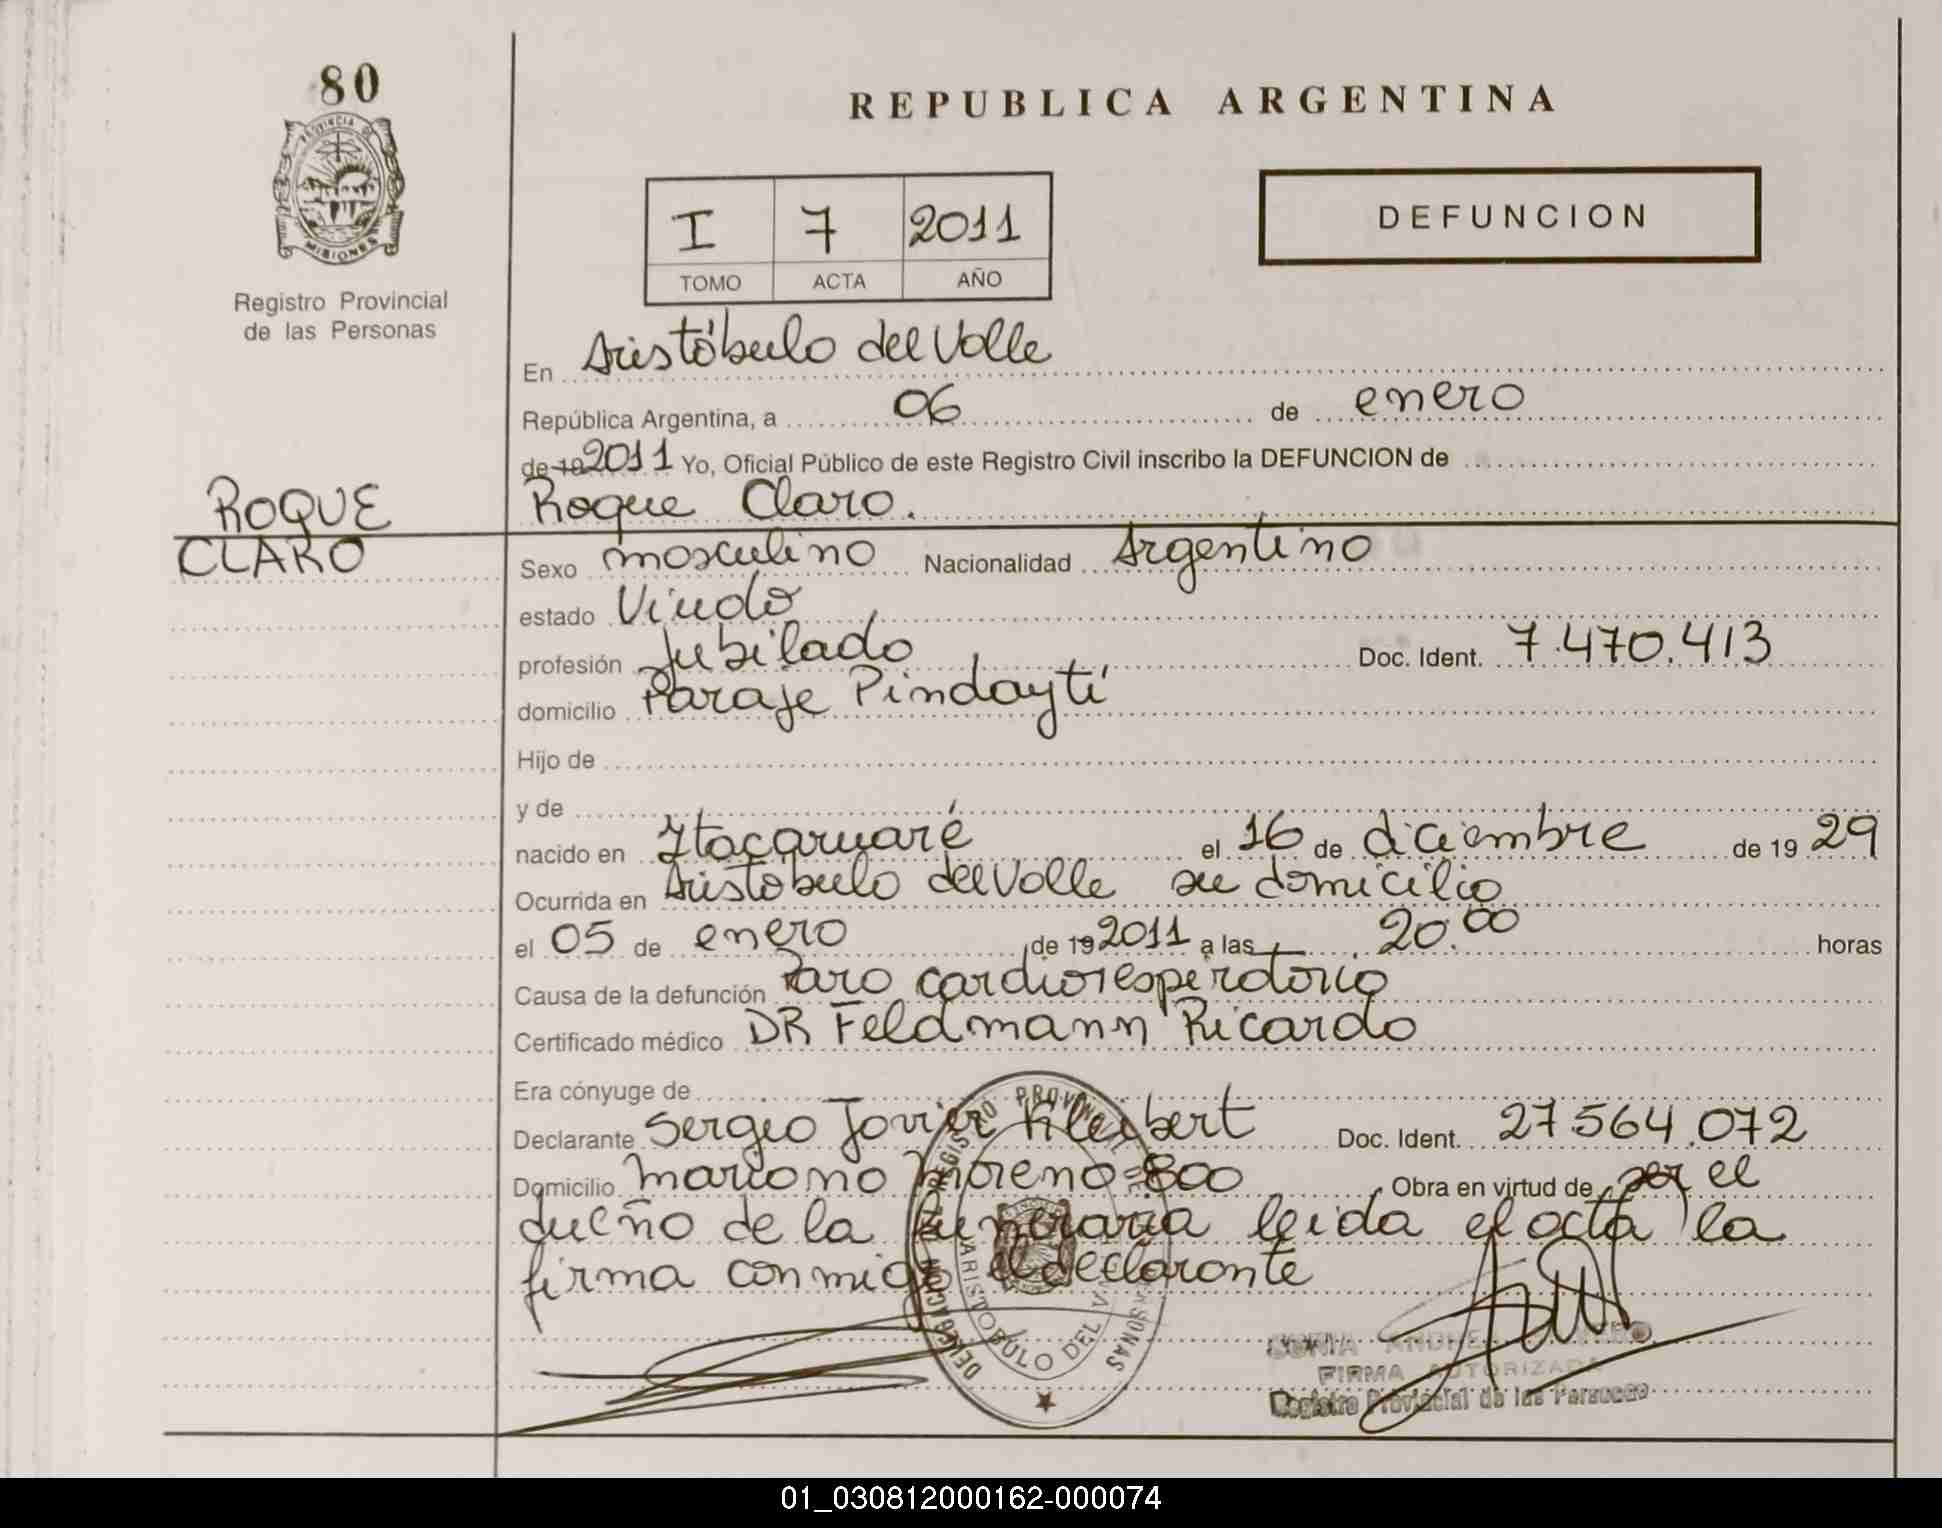 80
PROVINCIA DE
MISIONES
Registro Provincial
de las Personas
REPUBLICA ARGENTINA
I 7 2011
TOMO ACTA AÑO
DEFUNCION
En Aristóbulo del Valle
República Argentina, a 06 de enero
de 19 2011 Yo, Oficial Público de este Registro Civil inscribo la DEFUNCION de
Roque Claro.
ROQUE
CLARO
Sexo masculino Nacionalidad Argentino
estado Viudo
profesión Jubilado Doc. Ident. 7.470.413
domicilio Paraje Pindaytí
Hijo de
y de
nacido en Itacaruaré el 16 de diciembre de 19 29
Ocurrida en Aristobulo del Valle su domicilio
el 05 de enero de 19 2011 a las 20.00 horas
Causa de la defunción Paro cardiorespiratorio
Certificado médico DR Feldmann Ricardo
Era cónyuge de
Declarante Sergio Javier Kleibert Doc. Ident. 27.564.072
Domicilio Mariano Moreno 800 Obra en virtud de ser el
dueño de la funeraria leida el acta la
firma conmigo el declarante
DELEGACION DEL REGISTRO PROVINCIAL DE LAS PERSONAS
ARISTOBULO DEL VALLE
SONIA
FIRMA AUTORIZADA
Registro Provincial de las Personas
01_030812000162-000074